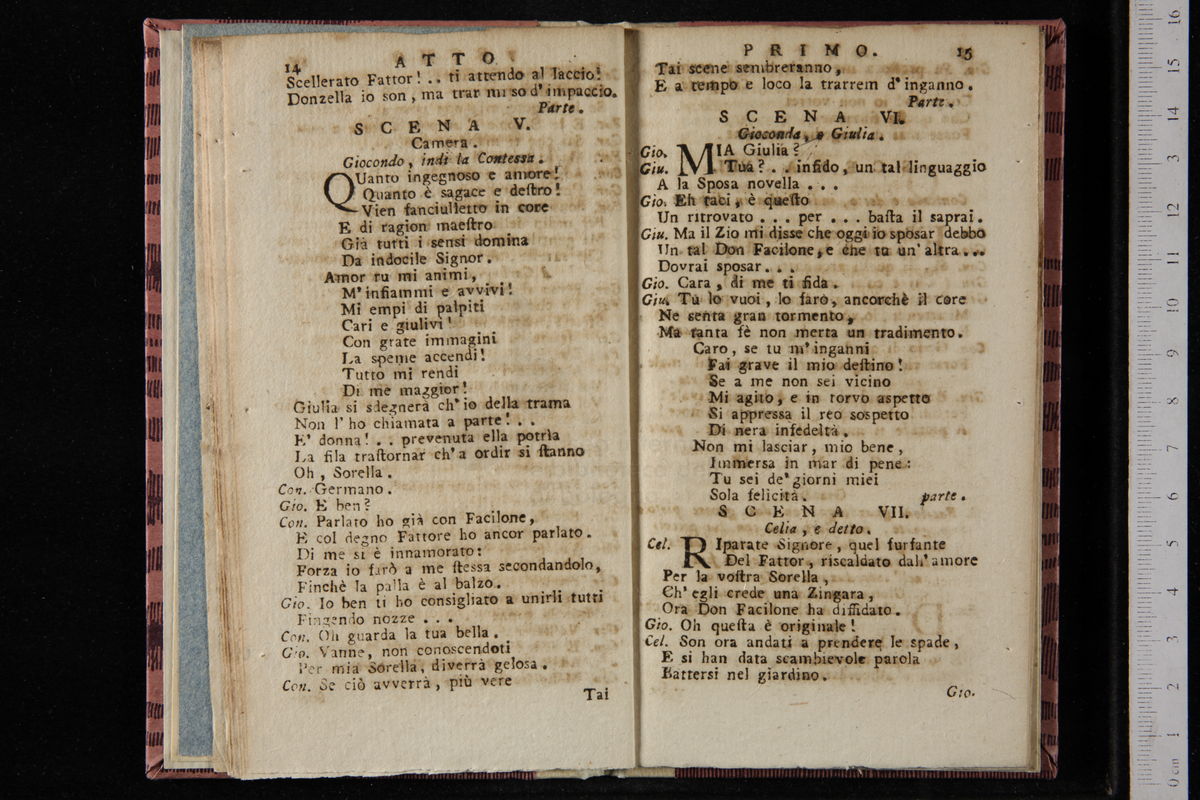 14 ATTO
Scellerato Fattor! .. ti attendo al laccio!
Donzella io son, ma trar mi so d'impaccio.
Parte.
SCENA V.
Camera.
Giocondo, indi la Contessa.
QUanto ingegnoso e amore!
Quanto è sagace e destro!
Vien fanciulletto in core
E di ragion maestro
Già tutti i sensi domina
Da indocile Signor.
Amor tu mi animi,
M'infiammi e avvivi!
Mi empi di palpiti
Cari e giulivi!
Con grate immagini
La speme accendi!
Tutto mi rendi
Di me maggior!
Giulia si sdegnerà ch'io della trama
Non l'ho chiamata a parte! . .
E' donna! . . prevenuta ella potrìa
La fila trastornar ch'a ordir si stanno
Oh, Sorella.
Con. Germano.
Gio. E ben?
Con. Parlato ho già con Facilone,
E col degno Fattore ho ancor parlato.
Di me si è innamorato:
Forza io farò a me stessa secondandolo,
Finchè la palla è al balzo.
Gio. Io ben ti ho consigliato a unirli tutti
Fingendo nozze . . .
Con. Oh guarda la tua bella.
Gio. Vanne, non conoscendoti
Per mia Sorella, diverrà gelosa.
Con. Se ciò avverrà, più vere
Tai
PRIMO. 15
Tai scene sembreranno,
E a tempo e loco la trarrem d'inganno.
Parte.
SCENA VI.
Gioconda, e Giulia.
Gio. MIA Giulia?
Giu. Tua? . . infido, un tal linguaggio
A la Sposa novella . . .
Gio. Eh taci, è questo
Un ritrovato . . . per . . . basta il saprai.
Giu. Ma il Zio mi disse che oggi io sposar debbo
Un tal Don Facilone, e che tu un'altra...
Dovrai sposar. . .
Gio. Cara, di me ti fida.
Giu. Tu lo vuoi, lo farò, ancorchè il core
Ne senta gran tormento,
Ma tanta fè non merta un tradimento.
Caro, se tu m'inganni
Fai grave il mio destino!
Se a me non sei vicino
Mi agito, e in torvo aspetto
Si appressa il reo sospetto
Di nera infedeltà.
Non mi lasciar, mio bene,
Immersa in mar di pene:
Tu sei de' giorni miei
Sola felicità. parte.
SCENA VII.
Celia, e detto.
Cel. RIparate Signore, quel furfante
Del Fattor, riscaldato dall'amore
Per la vostra Sorella,
Ch'egli crede una Zingara,
Ora Don Facilone ha diffidato.
Gio. Oh questa è originale!
Cel. Son ora andati a prendere le spade,
E si han data scambievole parola
Battersi nel giardino.
Gio.
0 cm 1 2 3 4 5 6 7 8 9 10 11 12 13 14 15 16